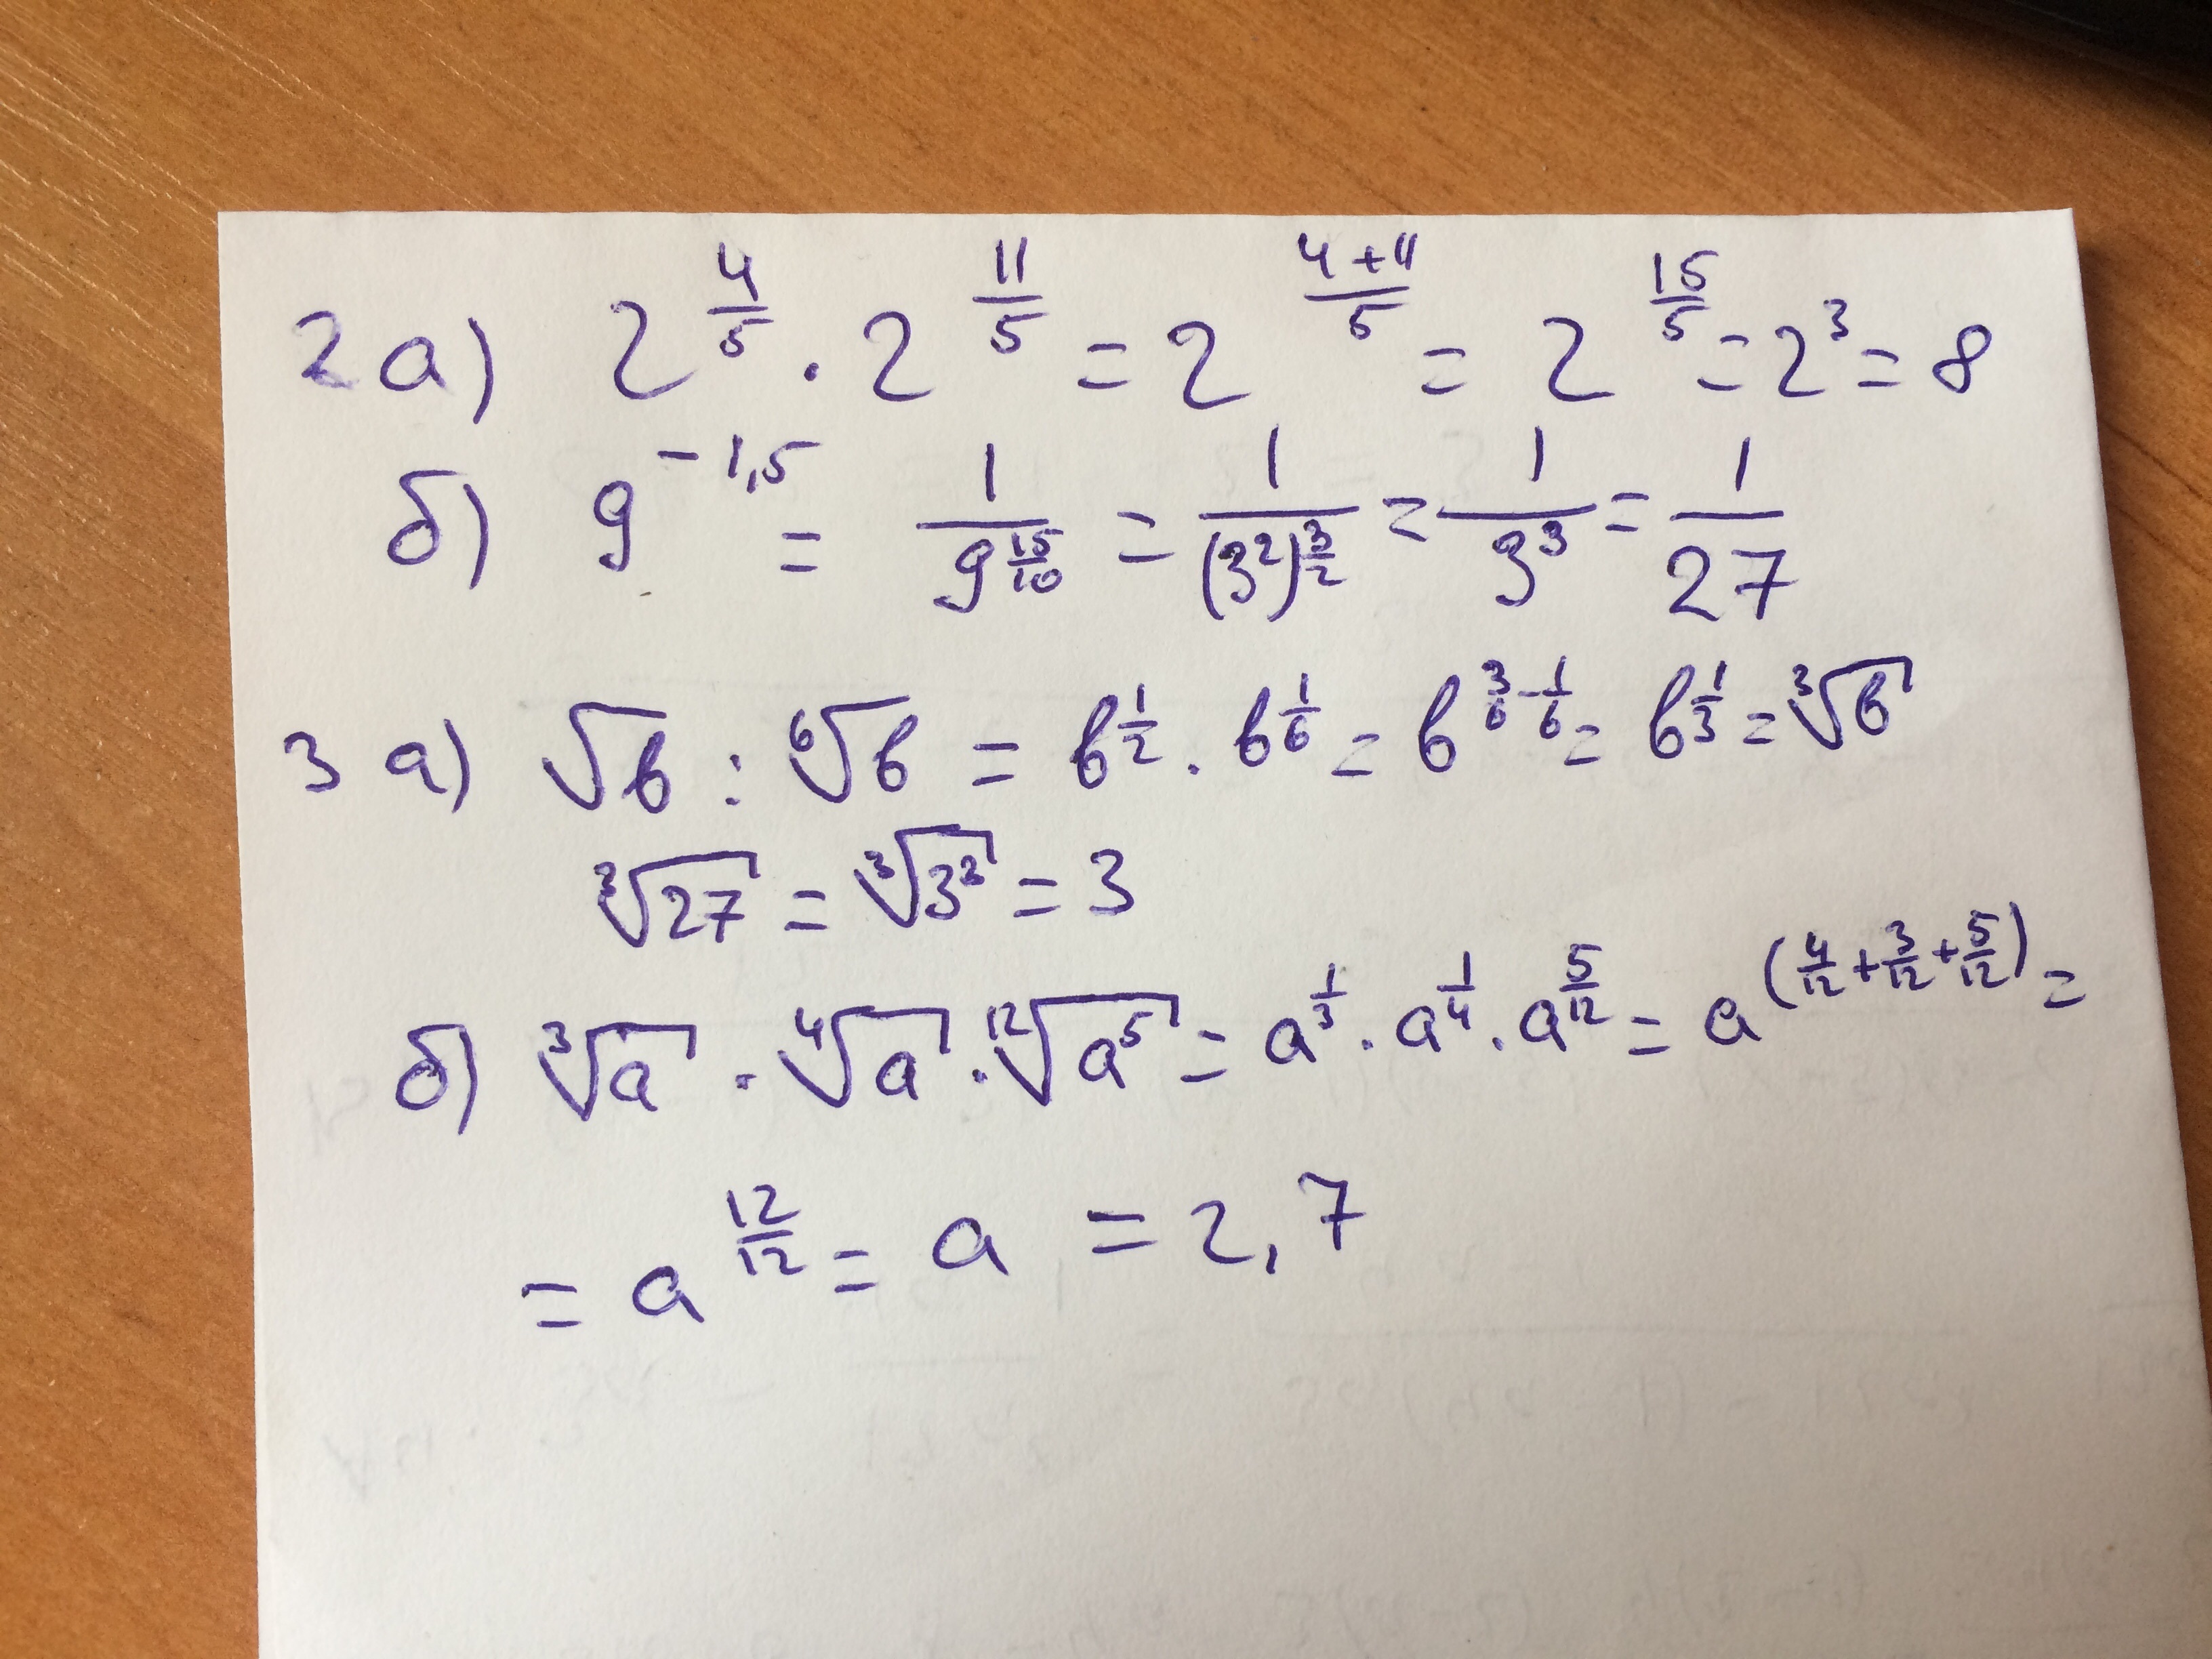 2 а) 2^(4/5) · 2^(11/5) = 2^((4+11)/5) = 2^(15/5) = 2³ = 8
б) 9^(-1,5) = 1/9^(15/10) = 1/(3²)^(3/2) = 1/3³ = 1/27
3 а) √b : ⁶√b = b^(1/2) · b^(1/6) = b^(3/6 - 1/6) = b^(1/3) = ³√b
³√27 = ³√3³ = 3
б) ³√a · ⁴√a · ¹²√a⁵ = a^(1/3) · a^(1/4) · a^(5/12) = a^(4/12 + 3/12 + 5/12) =
= a^(12/12) = a = 2,7